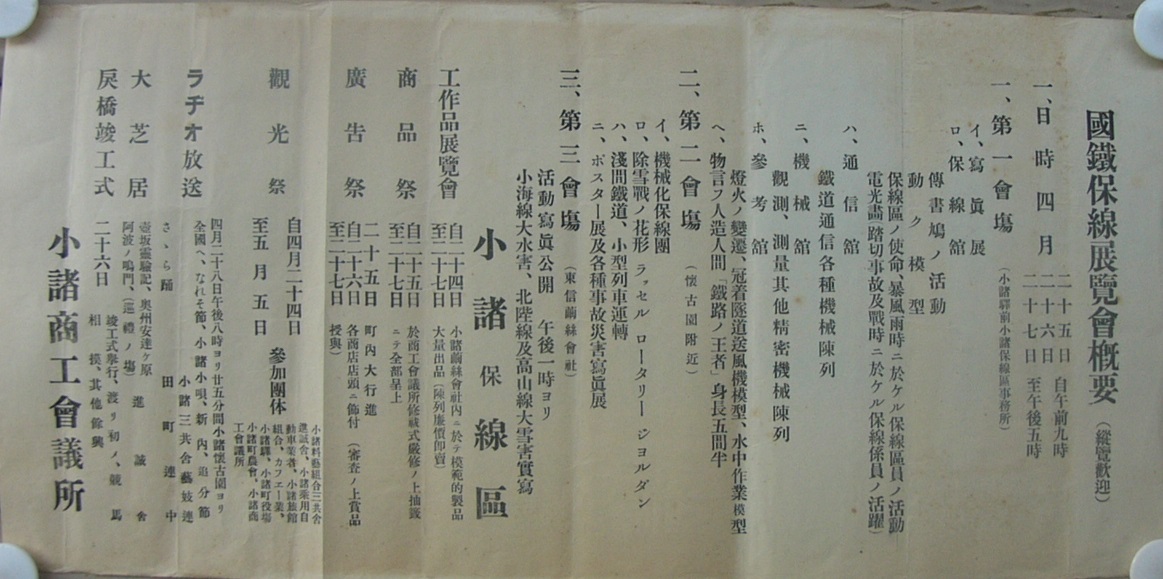 國鐵保線展覽會槪要（縱覽歡迎）
一、日時 四月 二十五日 二十六日 二十七日 自午前九時 至午後五時
一、第一會塲（小諸驛前小諸保線區事務所）
イ、寫眞展
ロ、保線舘
傳書鳩ノ活動
動ク模型
保線區ノ使命、暴風雨時ニ於ケル保線區員ノ活動
電光畵 踏切事故及戰時ニ於ケル保線係員ノ活躍）
ハ、通信舘
鐵道通信各種機械陳列
ニ、機械舘
觀測、測量其他精密機械陳列
ホ、參考舘
燈火ノ變遷、冠着隧道送風機模型、水中作業模型
ヘ、物言フ人造人間「鐵路ノ王者」身長五間半
二、第二會塲（懷古園附近）
イ、機械化保線團
ロ、除雪戰ノ花形 ラッセル ロータリー ジョルダン
ハ、淺間鐵道、小型列車運轉
ニ、ポスター展及各種事故災害寫眞展
三、第三會塲（東信繭絲會社）
活動寫眞公開 午後一時ヨリ
小海線大水害、北陸線及高山線大雪害實寫
小諸保線區
工作品展覽會 自二十四日 至二十七日 小諸繭絲會社內ニ於テ模範的製品 大量出品（陳列廉價卽賣）
商品祭 自二十五日 至二十七日 於商工會議所修祓式嚴修ノ上抽籤 ニテ全部呈上
廣告祭 二十五日 町內大行進 自二十六日 至二十七日 各商店店頭ニ飾付（審査ノ上賞品 授與）
觀光祭 自四月二十四日 至五月五日 參加團体
小諸料藝組合三共舍
進誠舍、小諸乘用自
動車業者、小諸旅館
組合、カフエー業、
小諸驛、小諸町役場
小諸町農會、小諸商
工會議所
ラヂオ放送 四月二十八日午後八時ヨリ廿五分間小諸懷古園ヨリ
全國ヘ、なれそ節、小諸小唄、新內、追分節
小諸三共舍藝妓連
さゝら踊 田町連中
大芝居 壺坂靈驗記、奧州安達ケ原 進誠舍
阿波ノ鳴門、（巡禮ノ塲）
戾橋竣工式 二十六日 竣工式擧行、渡リ初ノ、競馬
相撲、其他餘興
小諸商工會議所